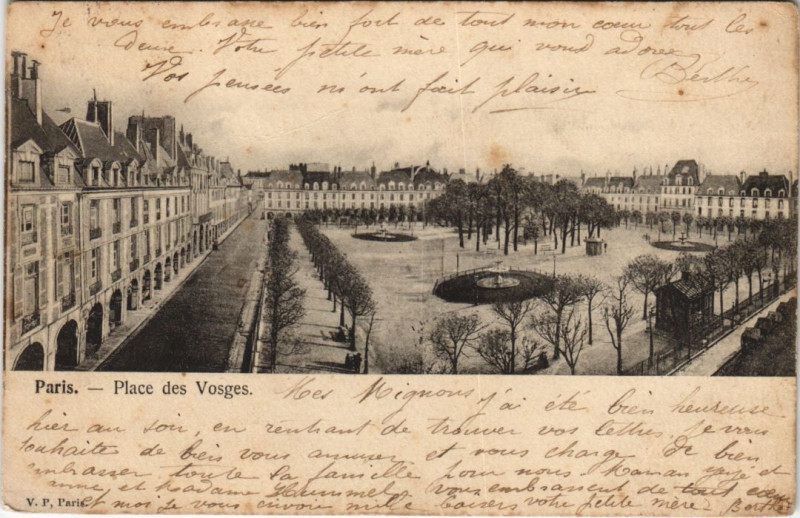 Je veus embrasse bien fort de tout mon cœur tout les
deux. Votre petite mère qui vous adore
Berthe
Vos pensées m'ont fait plaisir
Paris. — Place des Vosges.
Mes Mignons j'ai été bien heureuse
hier au soir, en rentrant de trouver vos lettres, je vous
souhaite de bien vous amuser et vous charge de bien
embrasser toute la famille pour nous. Maman et
et Madame Hummel vous embrassent de tout cœur
et moi je vous envoie mille baisers votre petite mère Berthe
V. P, Paris.